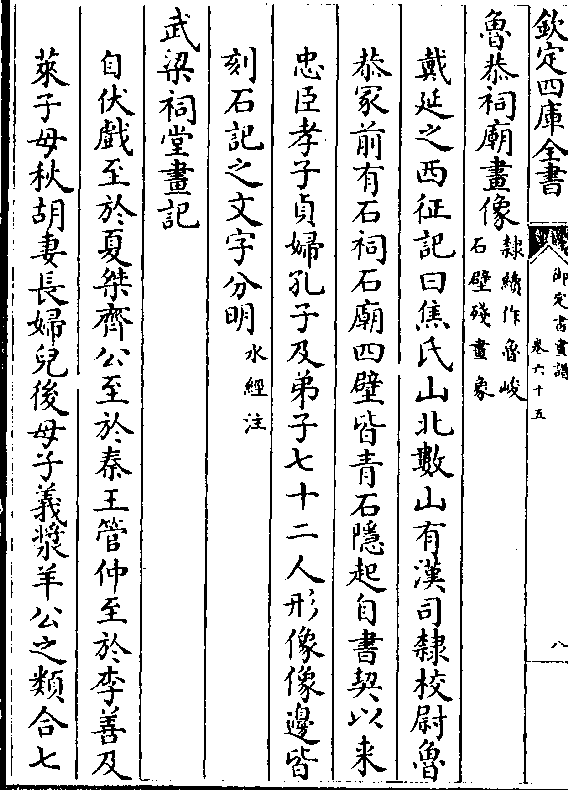 欽定四庫全書
御定書畫譜
卷六十五
八
魯恭祠廟畫像
隸續作魯峻
石壁殘畫象
戴延之西征記曰焦氏山北數山有漢司隸校尉魯
恭冢前有石祠石廟四壁皆青石隱起自書契以来
忠臣孝子貞婦孔子及弟子七十二人形像像邊皆
刻石記之文字分明
水經注
武梁祠堂畫記
自伏戲至於夏桀齊公至於秦王管仲至於李善及
萊子母秋胡妻長婦兒後母子義漿羊公之類合七